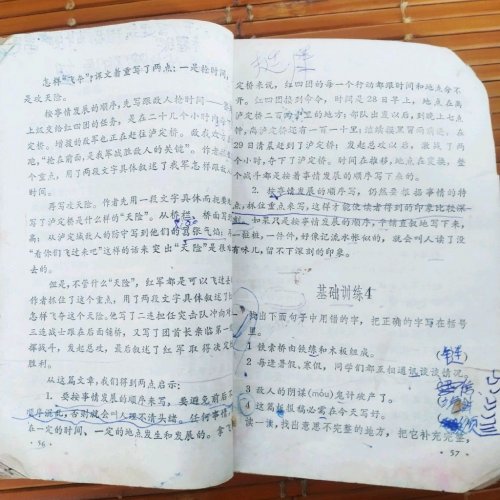 怎样“飞夺”？课文着重写了两点：一是抢时间，
是攻天险。
按事情发展的顺序，先写跟敌人抢时间
上级交给红四团的任务，是在二十九个小时
定桥。增援的敌军也正在赶往泸定桥。敌我
地，“抢在前面，是我军战胜敌人的关键”。作者
个重点，用了两段文字具体叙述了我军怎样跟敌
时间。
再写攻天险。作者先用一段文字具体而把
写了泸定桥是什么样的“天险”。从桥栏、桥面
高；从泸定城敌人的防守写到他们的嚣张气焰：
“看你们飞过来吧”这样的话来突出“天险”是很
去的。
但是，不管什么“天险”，红军都是可以飞过去
作者抓住了这个重点，用了两段文字具体叙述了
怎样飞夺这个天险。他写了二连担任突击队冲
三连战士跟在后面铺桥，又写了团首长亲临第一
挥战斗，发起总攻，最后叙述了红军取得决定
胜利。
从这篇文章，我们得到两点启示：
1．要按事情发展的顺序来写，要避免前后
顺序混乱，否则就会叫人理不清头绪。任何事情
在一定的时间、一定的地点发生和发展的。拿飞
·56·
定桥来说，红四团的每一个行动都跟时间和地点分不
开。红四团接到命令，时间是28日早上，地点在离
泸定桥二百四十里的地方；部队出发以后，到晚上七点
钟，离泸定桥还有一百一十里；结果摸黑冒雨前进，在
29日清晨赶到了泸定桥；发起总攻以后，激战了两
个小时，夺下了泸定桥。时间在推移，地点在变换，整
个战斗都是按着事情发展的顺序写下来的。
2．按事情发展的顺序写，仍然要根据事情的特
点，抓住重点来写，这样才能使读者得到的印象比较深
刻。如果只是按事情发展的顺序，平铺直叙地写下来，
一桩桩，一件件，好像记流水帐似的，就会叫人读了没
有味儿，留不下深刻的印象。
基础训练4
找出下面句子中用错的字，把正确的字写在括号
里。
1 铁索桥由铁练和木板组成。
(链)
2 每逢暑假、寒假，同学们都互相通讯谈谈情况。
3 敌人的阴谋(móu)鬼计破产了。
4 这篇简报稿必需在今天写好。
读一读，找出意思不完整的地方，把它补充完整，
·57·